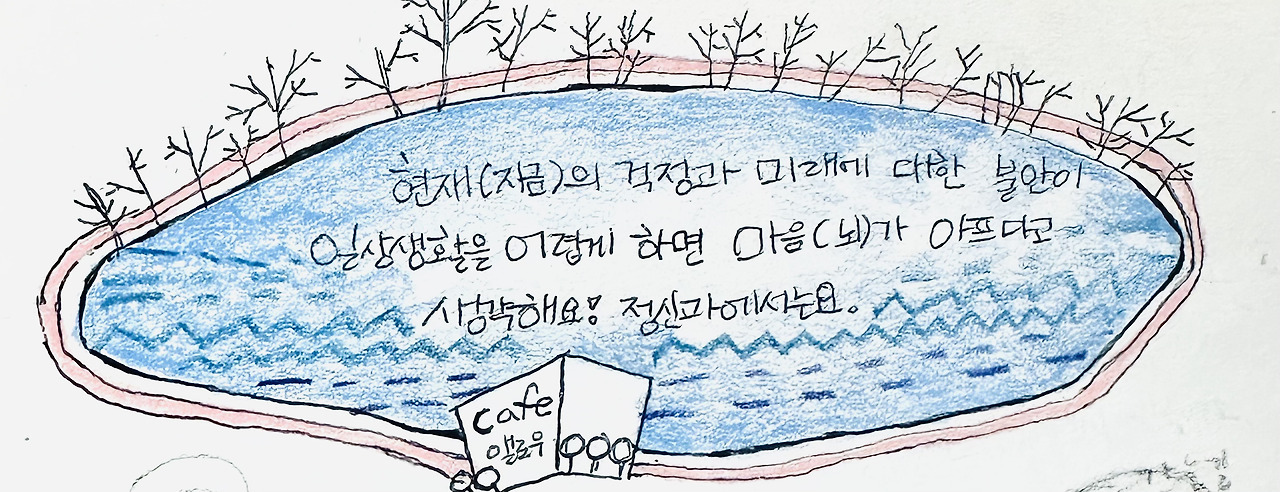 현재(지금)의 걱정과 미래에 대한 불안이
일상생활을 어렵게 하면 마음(뇌)가 아프다고
생각해요! 정신과에서는요.
cafe
옐로우